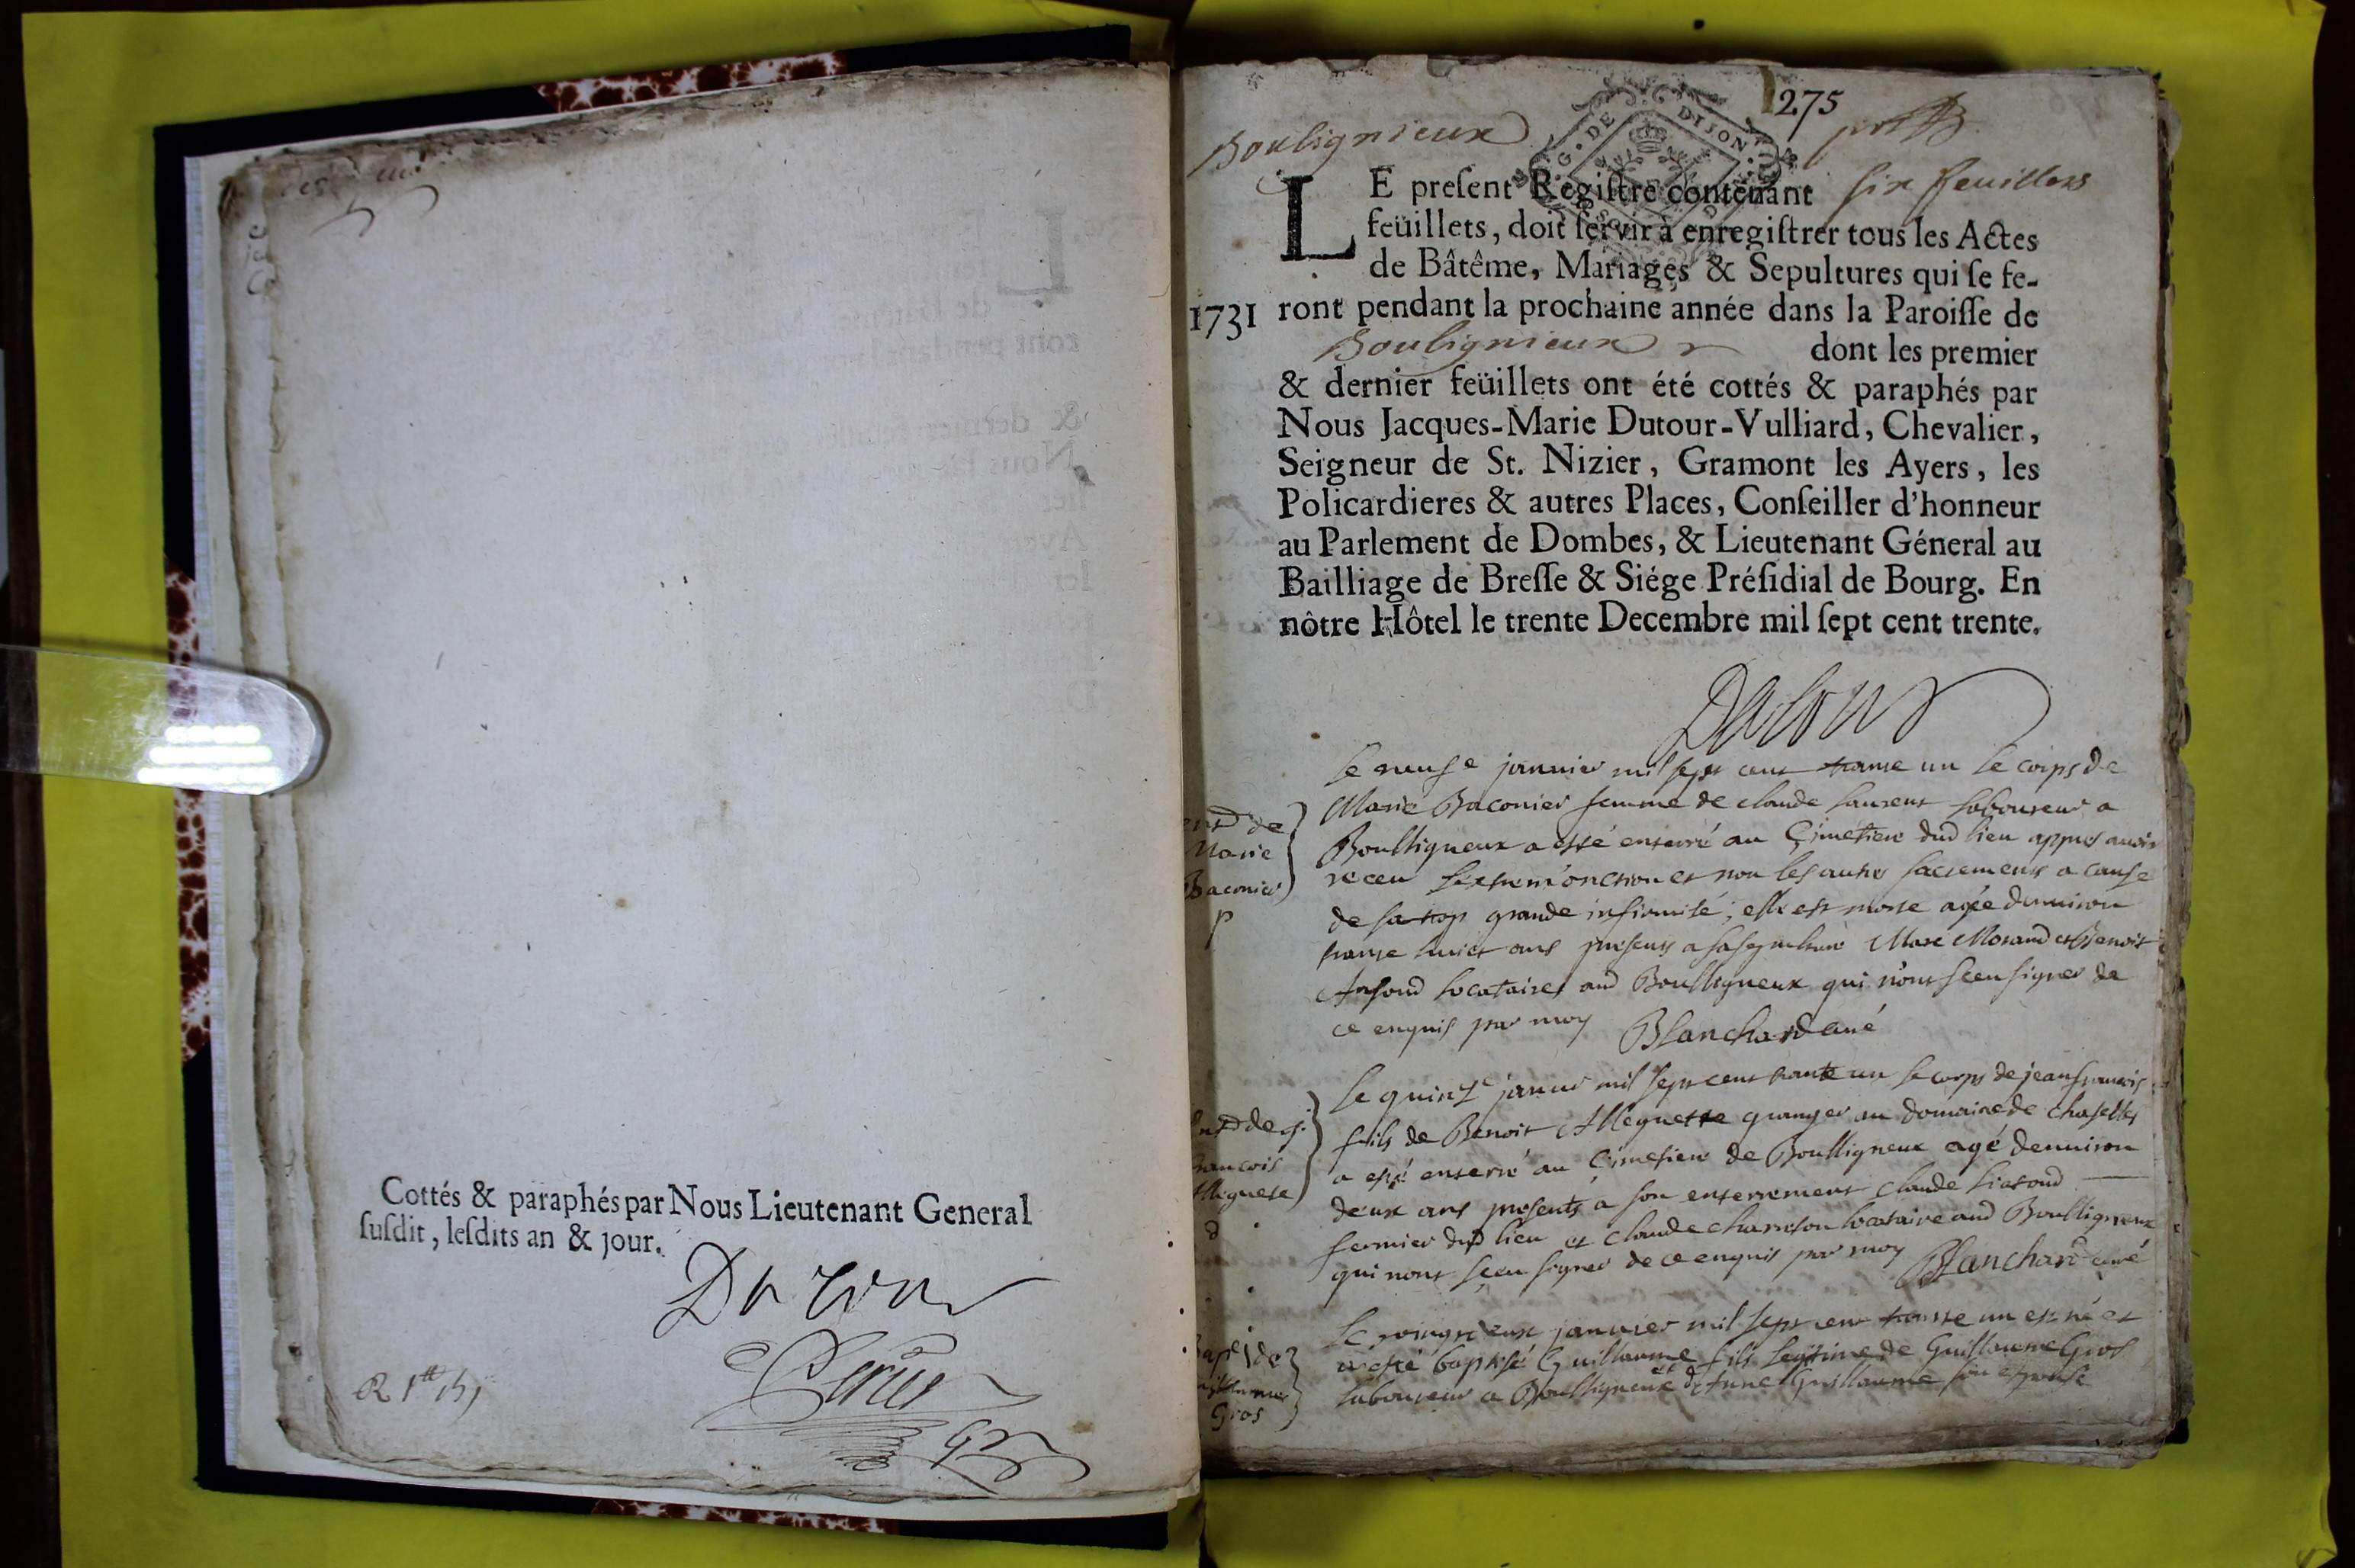 Cottés & paraphés par Nous Lieutenant General
ſuſdit, leſdits an & jour.
Dutour
275
Bouligneux
G. DE DIJON
LE preſent Regiſtre contenant six feuillets
feüillets, doit ſervir à enregiſtrer tous les Actes
de Bâtême, Mariages & Sepultures qui ſe fe-
1731 ront pendant la prochaine année dans la Paroiſſe de
Bouligneux dont les premier
& dernier feüillets ont été cottés & paraphés par
Nous Jacques-Marie Dutour-Vulliard, Chevalier,
Seigneur de St. Nizier, Gramont les Ayers, les
Policardieres & autres Places, Conſeiller d'honneur
au Parlement de Dombes, & Lieutenant Géneral au
Bailliage de Breſſe & Siége Préſidial de Bourg. En
nôtre Hôtel le trente Decembre mil ſept cent trente.
Dutour
Marie
Baconier
p
le neufe janvier mil sept cent trante un le corps de
Marie Baconier femme de claude laurent laboureur a
Boulligneux a esté enterré au Cimetiere dud lieu appres avoir
receu l'extremonction et non les autres sacrements a cause
de sa trop grande infirmité, elle est morte agée denviron
trante huict ans presents a sa sepulture Marc Morand et Benoit
locataires aud Boulligneux qui n'ont sceu signer de
ce enquis par moy Blanchard curé
francois
d
le quinze janvier mil sept cent trante un le corps de jean francois
fils de Benoit Alleguette granger au domaine de chaselles
a esté enterré au Cimetiere de Boulligneux agé denviron
deux ans presents a son enterrement claude
fermier dud lieu et claude locataire aud Boulligneux
qui n'ont sceu signer de ce enquis par moy Blanchard curé
Gros
le vingt deux janvier mil sept cent trante un est né et
a esté baptisé Guillaume fils legitime de Guillaume Gros
laboureur a Boulligneux et d' Guillaume son espouse